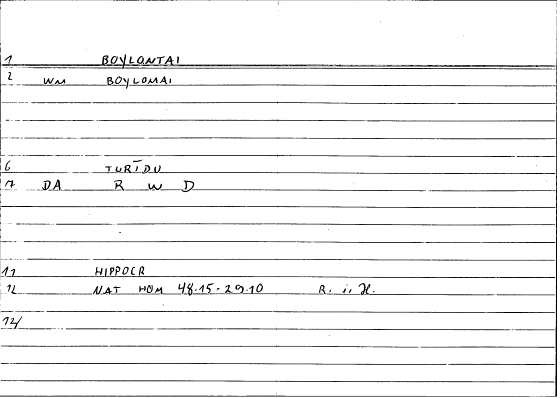 1 BOYLONTAI
2 WM BOYLOMAI
6 TURĪDU
17 DA R W D
11 HIPPOCR
12 NAT HOM 48.15-29.10 R. ii H.
12/